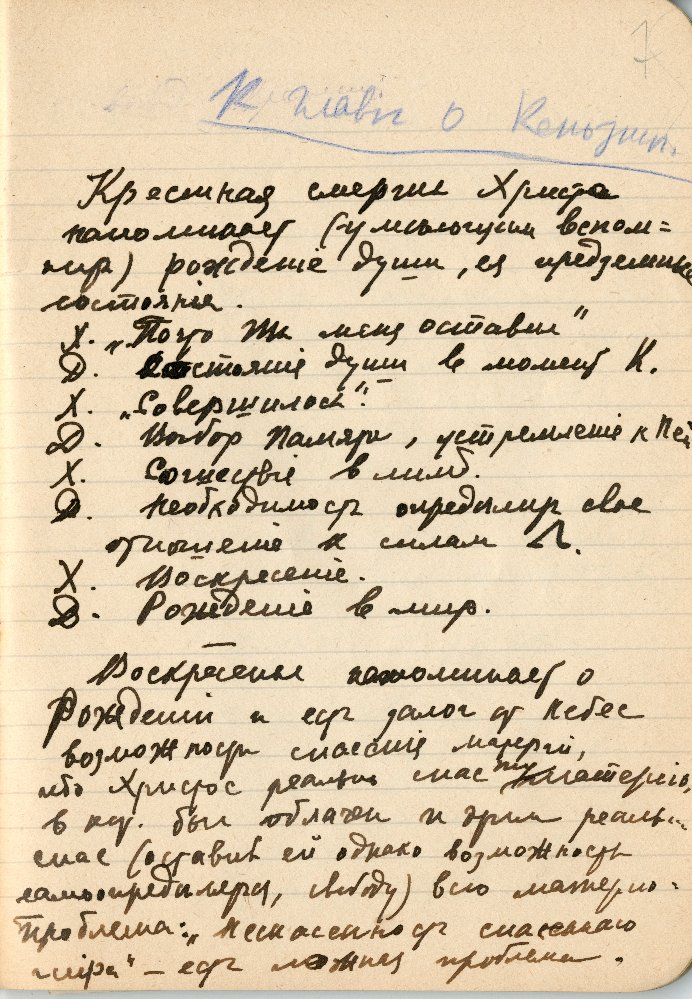 7
К главе о
Крестная смерть Христа
напоминает (
) рожденіе души, ея предземное
состояніе.
Х. „Почто Ты меня оставил"
Д. Состояніе души в момент К.
Х. „Совершилось".
Д. Выбор Памяти, устремленіе к Ней
Х. Сошествіе в лимб.
Д. Необходимость определить свое
отношеніе к силам Л.
Х. Воскресеніе.
Д. Рожденіе в мир.
Воскресенье напоминает о
Рожденіи и есть залог от Небес
возможности спасенія матеріи,
ибо Христос реально спас ту матерію,
в кот. был облачен и этим реально
спас (оставив ей однако возможность
самоопределиться, свободу) всю матерію.
Проблема: „Неспасенность спасеннаго
міра" – есть ложная проблема.